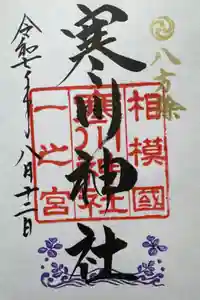 八方除
相模國
寒川神社
一之宮
寒川神社
令和七年八月十二日